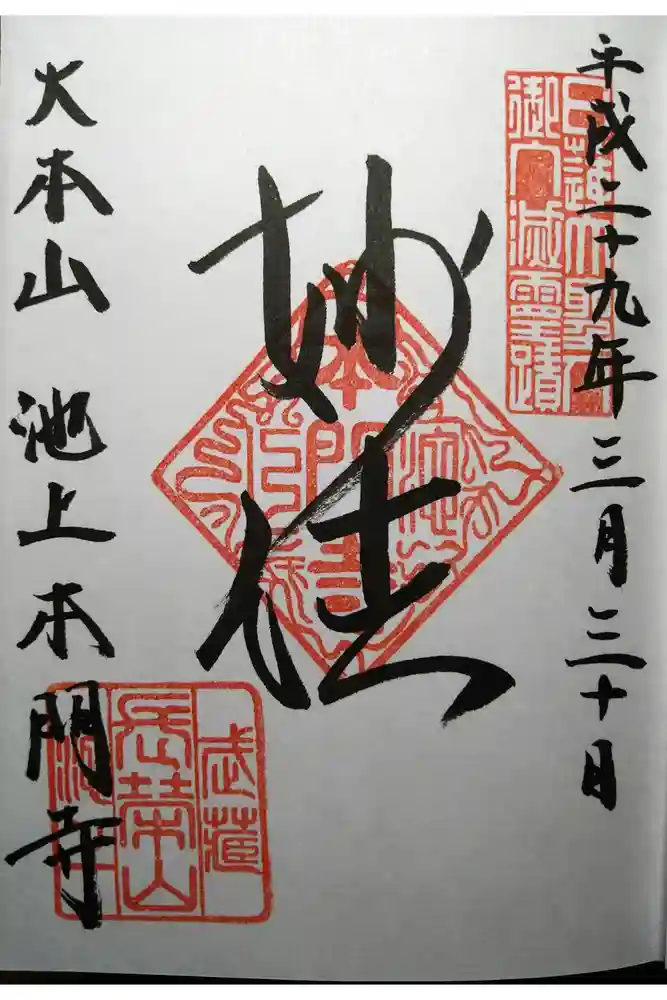 平成二十九年三月三十日
日蓮大聖人
御入滅靈蹟
妙法
大本山 池上本門寺
武蔵
長榮山
池上